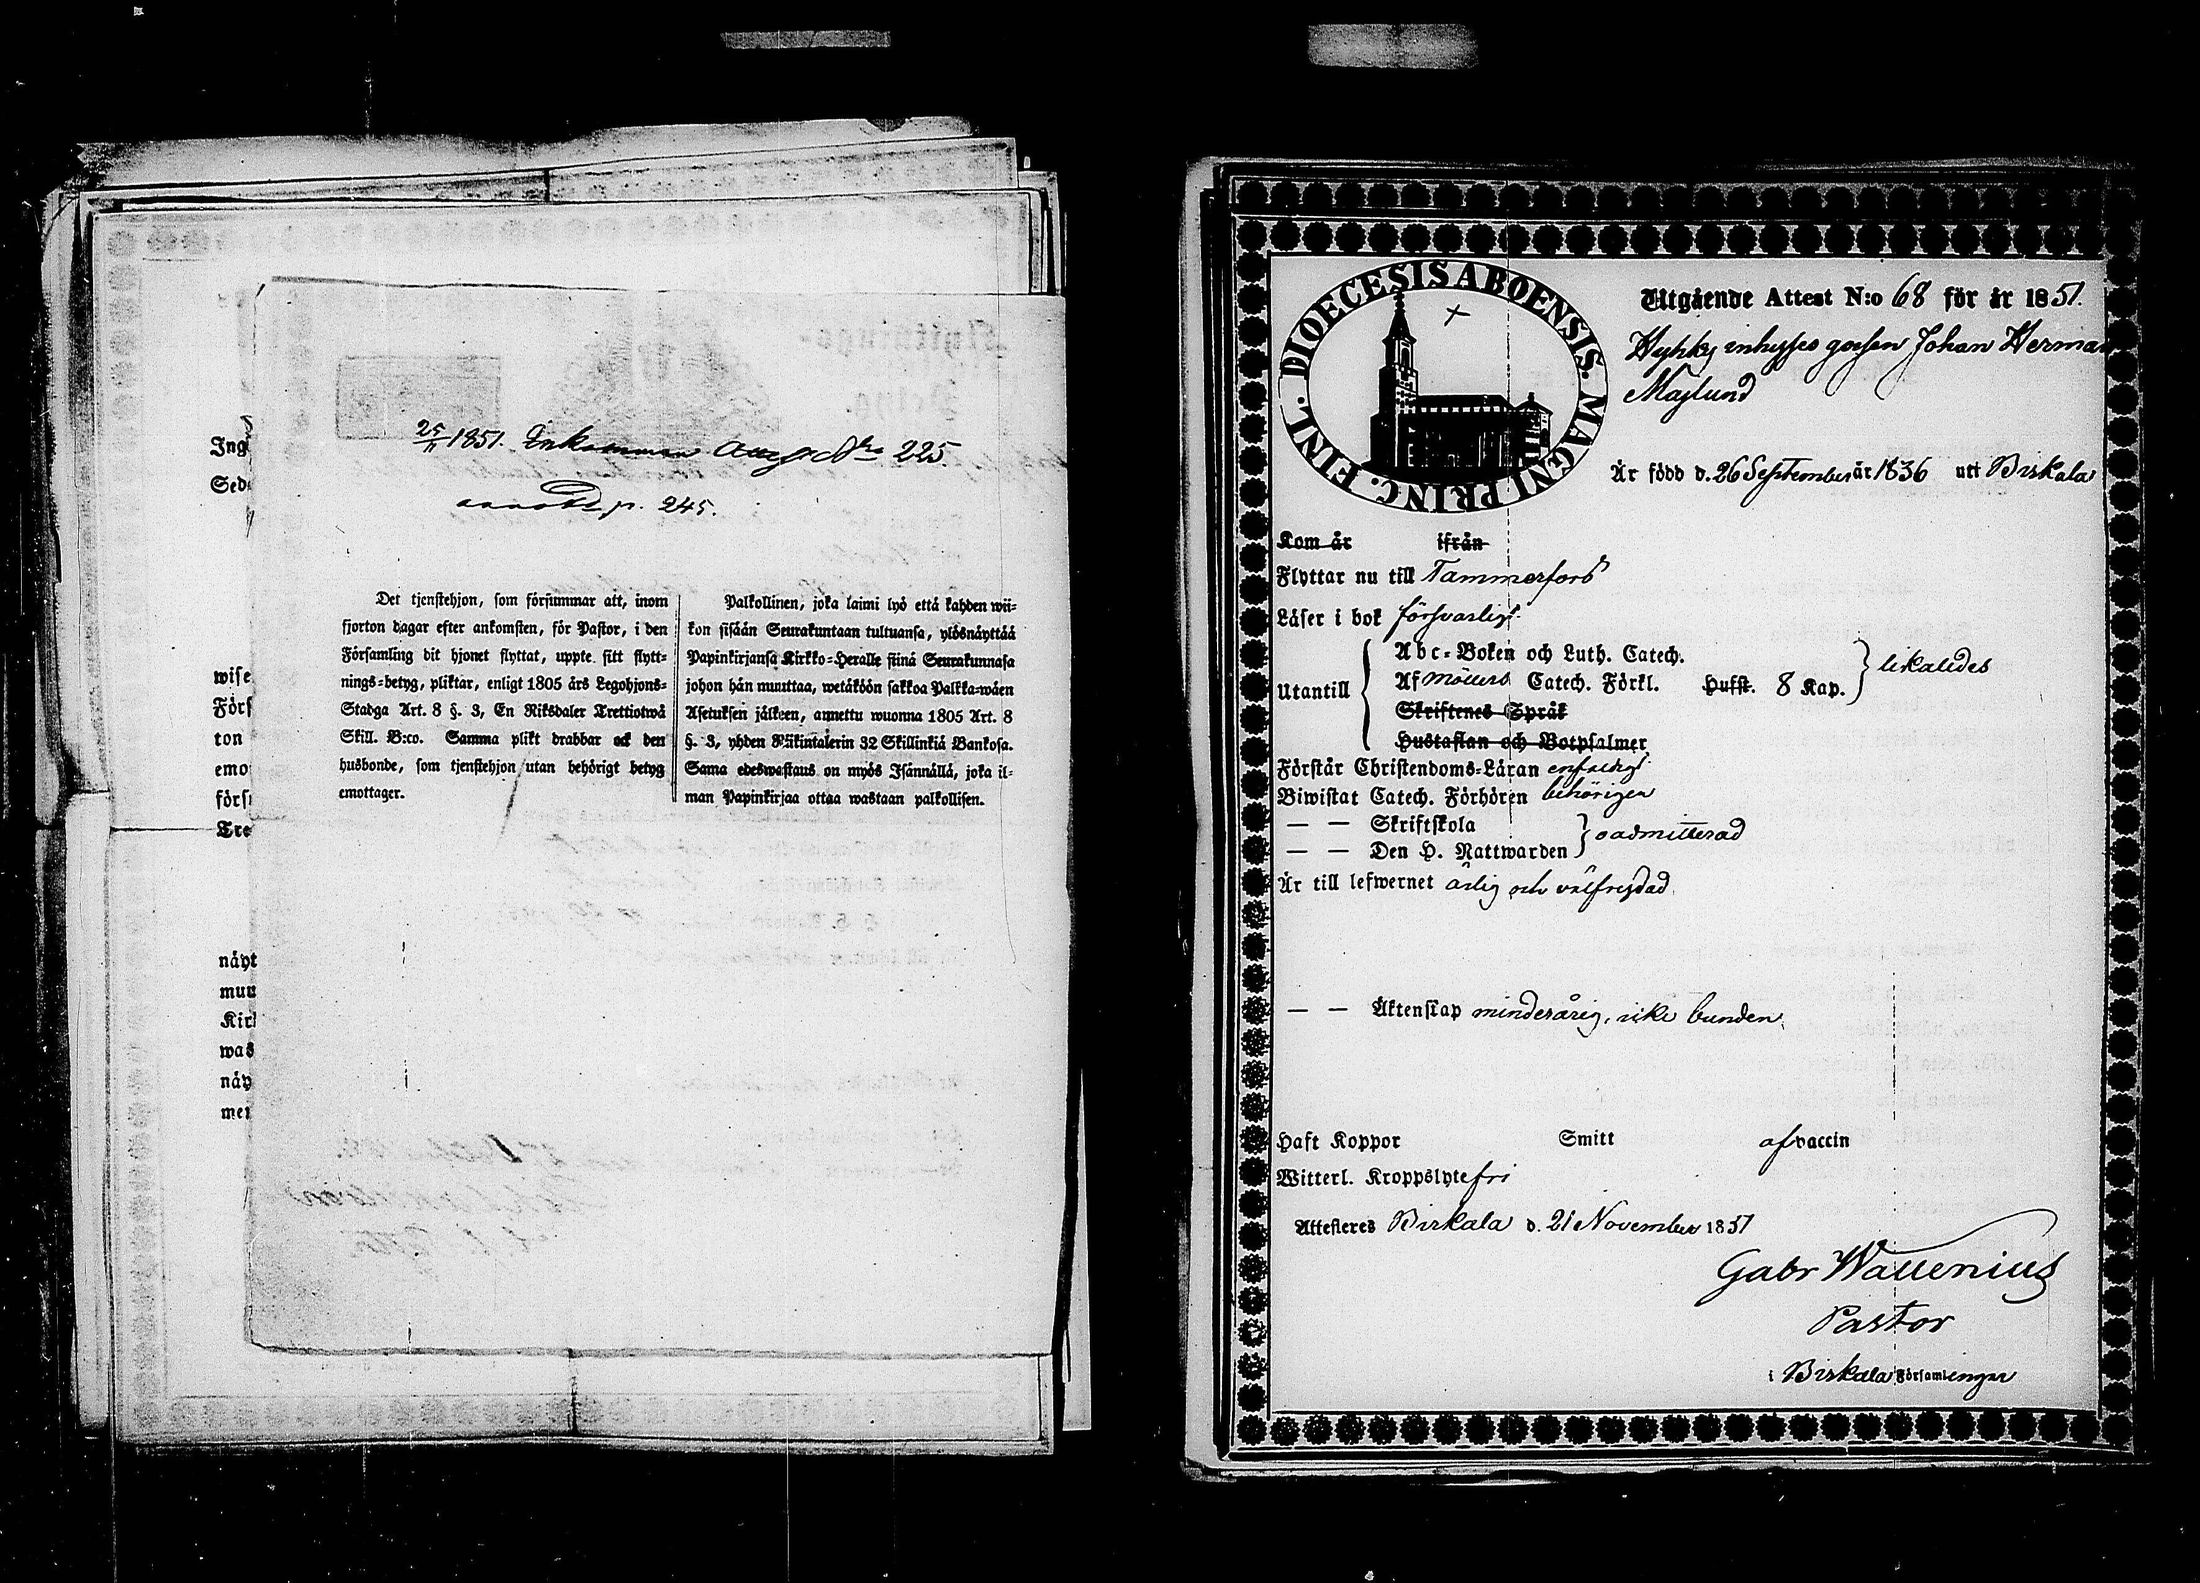 25/11 1851. Inkommen No 225.
annot. p. 245.
Det tjenstehjon, som försummar att, inom
fjorton dagar efter ankomsten, för Pastor, i den
Församling dit hjonet flyttat, uppte sitt flytt-
nings-betyg, pliktar, enligt 1805 års Legohjons-
Stadga Art. 8 §. 3, En Riksdaler Trettiotwå
Skill. B:co. Samma plikt drabbar ock den
husbonde, som tjenstehjon utan behörigt betyg
emottager.
Palkollinen, joka laimi lyö että kahden wii-
kon sisään Seurakuntaan tultuansa, ylösnäyttää
Papinkirjansa Kirkko-Heralle siinä Seurakunnasa
johon hän muuttaa, wetäköön sakkoa Palkka-wäen
Asetuksen jälkeen, annettu wuonna 1805 Art. 8
§. 3, yhden Riikintalerin 32 Skillinkiä Bankosa.
Sama edeswastaus on myös Isännällä, joka il-
man Papinkirjaa ottaa wastaan palkollisen.
Ing
Sed
wise
Förs
ton
emo
förs
Tre
näyt
muu
Kir
was
näy
mer
DIOECESIS ABOENSIS. MAGNI PRINC. FINL.
Utgående Attest N:o 68 för år 1851.
Hyhky inhyses gossen Johan Herman
Maglund
Är född d. 26 September år 1836 uti Birkala
Kom år ifrån
Flyttar nu till Tammerfors
Läser i bok försvarligt.
Utantill
Abc-Boken och Luth. Catech.
Af Möllers Catech. Förkl. Husst. 8 Kap.
likaledes
Skriftenes Språk
Hustaflan och Botpsalmer
Förstår Christendoms-Läran enfaldigt.
Biwistat Catech. Förhören behörigen
— — Skriftskola
— — Den H. Nattwarden
oadmitterad
Är till lefwernet ärlig och välfrejdad.
— — Äktenskap minderårig, icke bunden.
Haft Koppor Smitt af vaccin
Witterl. Kroppslyte fri
Attesteres Birkala d. 21 November 1851
Gabr Wallenius
Pastor
i Birkala Församlingar